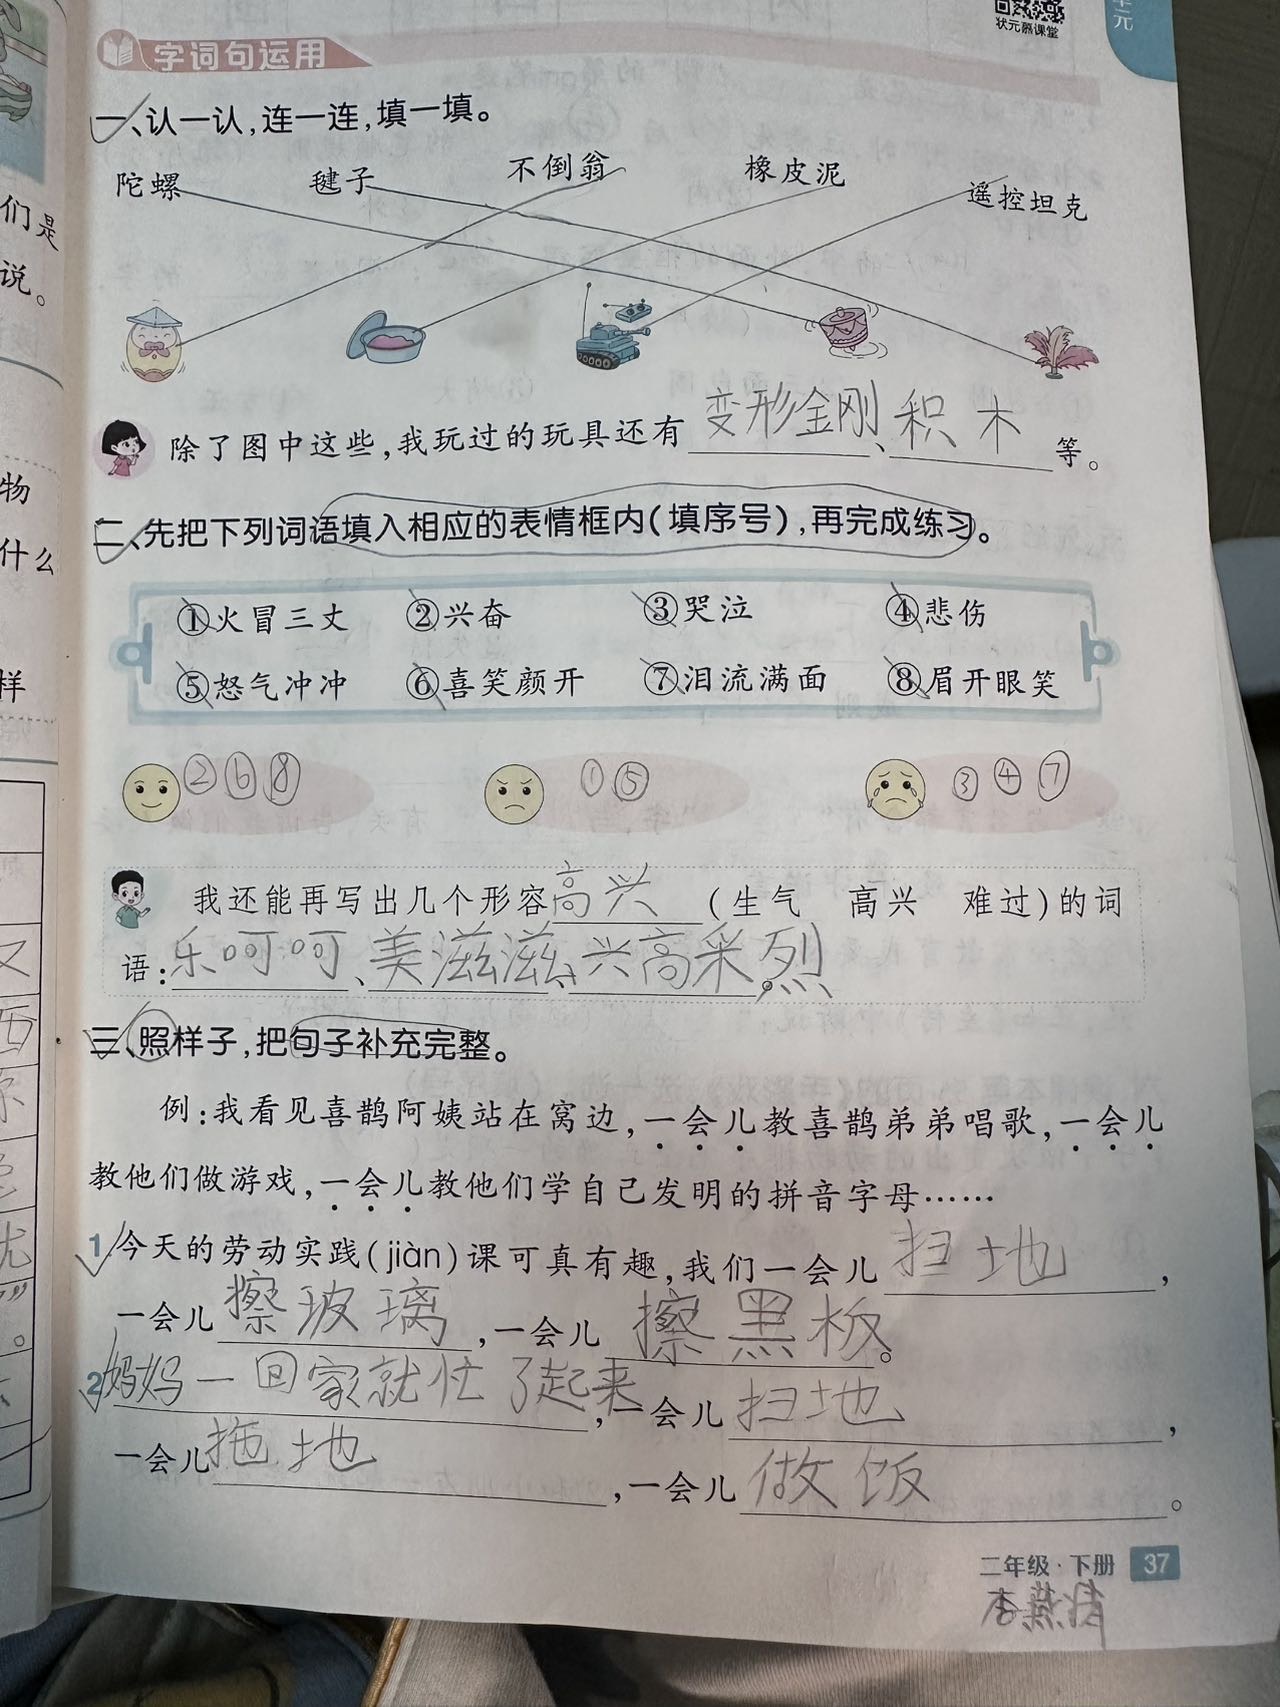 状元慕课堂
单元
字词句运用
一、认一认,连一连,填一填。
陀螺 毽子 不倒翁 橡皮泥 遥控坦克
除了图中这些,我玩过的玩具还有变形金刚、积木等。
二、先把下列词语填入相应的表情框内(填序号),再完成练习。
①火冒三丈 ②兴奋 ③哭泣 ④悲伤
⑤怒气冲冲 ⑥喜笑颜开 ⑦泪流满面 ⑧眉开眼笑
②⑥⑧ ①⑤ ③④⑦
我还能再写出几个形容高兴(生气 高兴 难过)的词
语:乐呵呵、美滋滋、兴高采烈。
三、照样子,把句子补充完整。
例:我看见喜鹊阿姨站在窝边,一会儿教喜鹊弟弟唱歌,一会儿
教他们做游戏,一会儿教他们学自己发明的拼音字母……
1.今天的劳动实践(jiàn)课可真有趣,我们一会儿扫地,
一会儿擦玻璃,一会儿擦黑板。
2.妈妈一回家就忙了起来,一会儿扫地,
一会儿拖地,一会儿做饭。
二年级·下册 37
们是
说。
物
什么
样